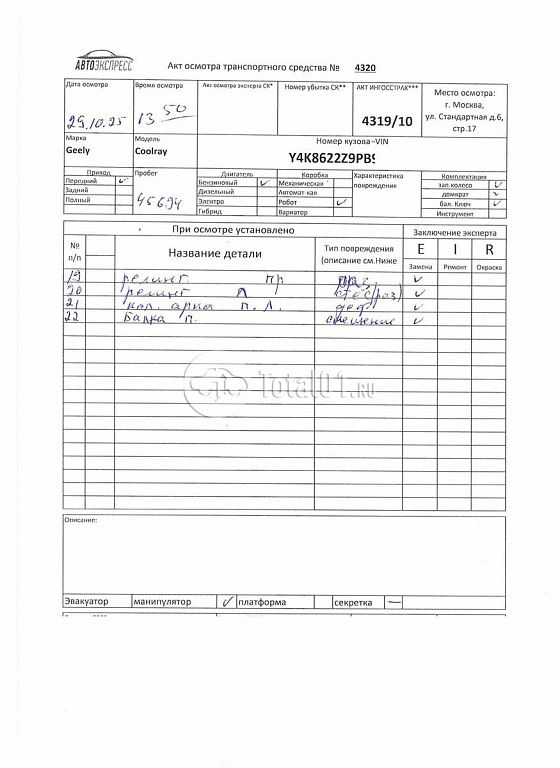 АВТОЭКСПРЕСС
Акт осмотра транспортного средства № 4320
Дата осмотра
29.10.25
Время осмотра
13 50
Акт осмотра эксперта СК*
Номер убытка СК**
АКТ ИНГОССТРАХ***
4319/10
Место осмотра:
г. Москва,
ул. Стандартная д.6,
стр.17
Марка
Geely
Модель
Coolray
Номер кузова -VIN
Y4K8622Z9PB
Привод
Передний ✓
Задний
Полный
Пробег
45694
Двигатель
Бензиновый ✓
Дизельный
Электро
Гибрид
Коробка
Механическая
Автомат-кая
Робот ✓
Вариатор
Характеристика
повреждения
Комплектация
зап.колесо ✓
домкрат
бал. Ключ ✓
Инструмент
При осмотре установлено
Заключение эксперта
№
п/п
Название детали
Тип повреждения
(описание см.Ниже
E I R
Замена Ремонт Окраска
19 релинг пр раз. ✓
20 релинг Л ✓
21 кол. арка п. л. деф. ✓
22 Балка п. смещение ✓
Total01.RU
Описание:
Эвакуатор манипулятор ✓ платформа секретка —